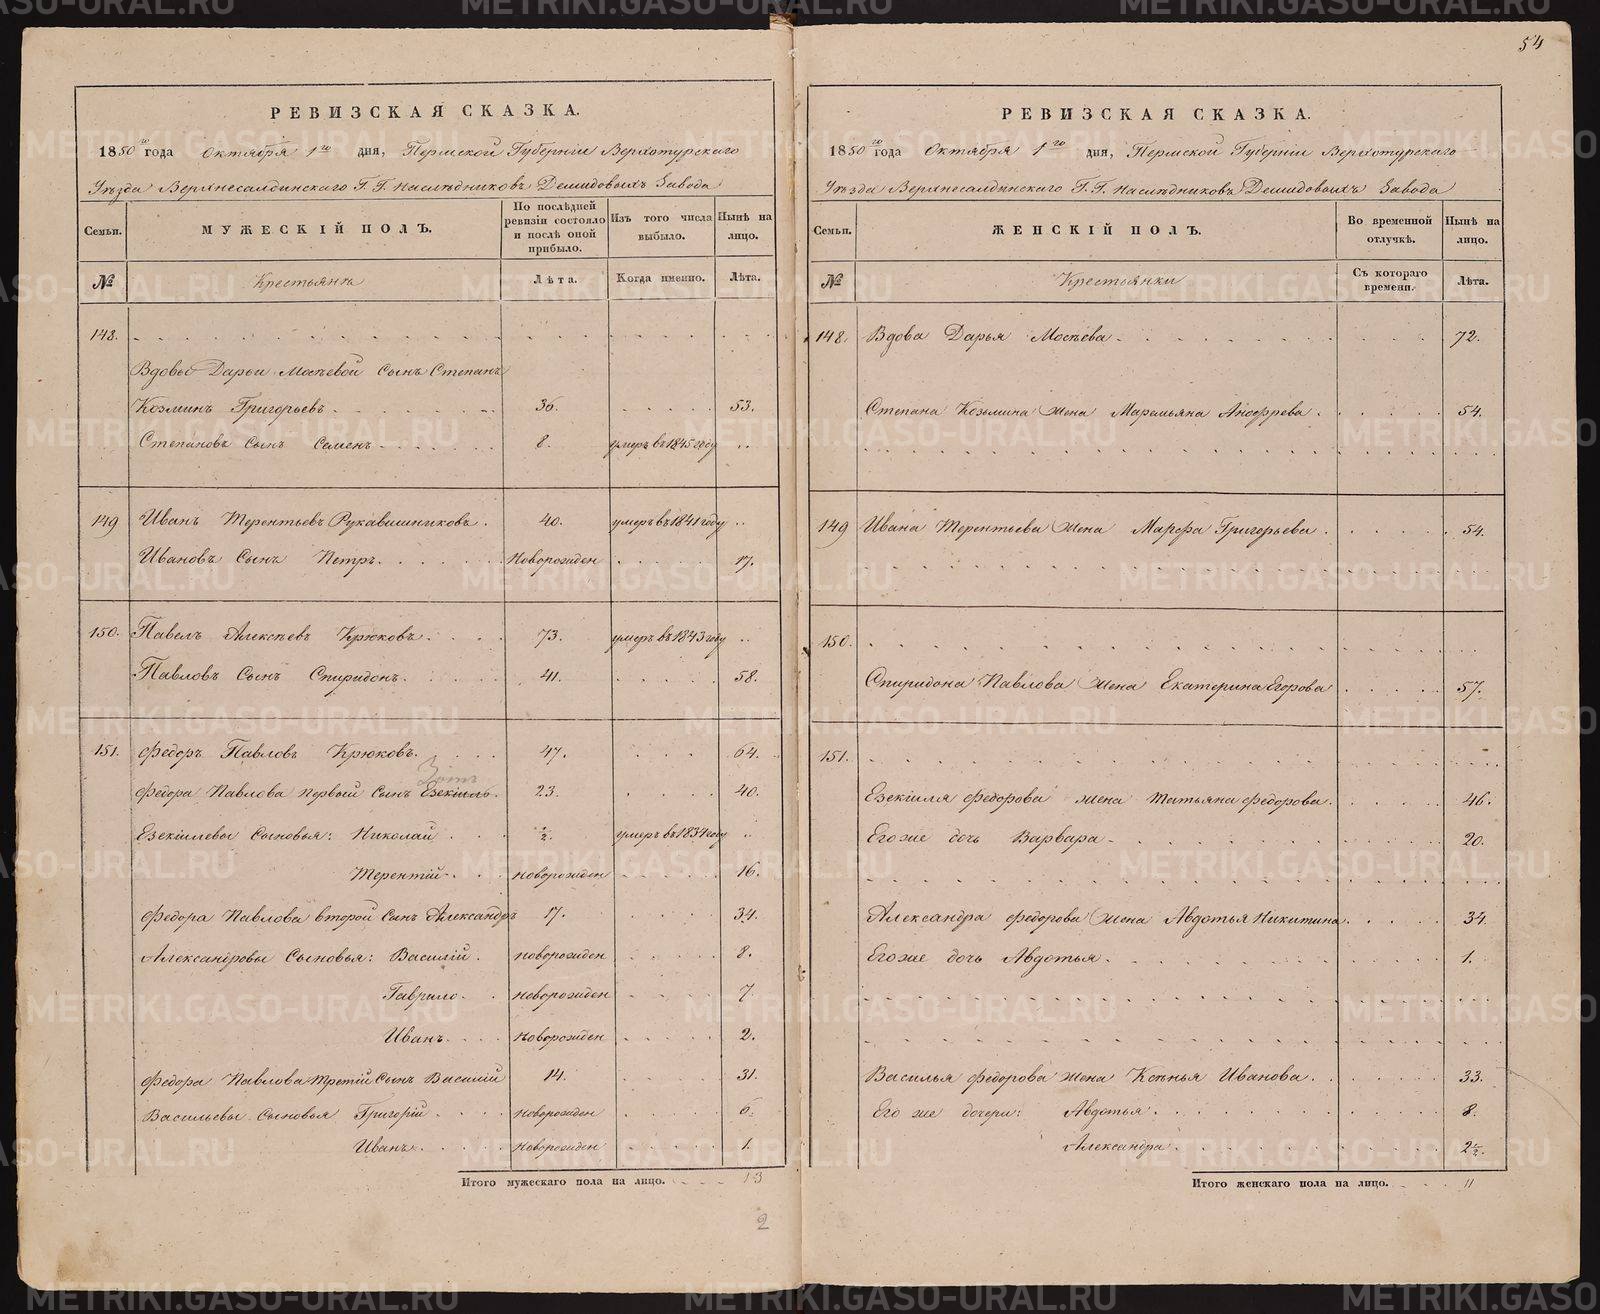 54
РЕВИЗСКАЯ СКАЗКА.
1850го года Октября 1го дня, Пермской Губерніи Верхотурскаго
Уѣзда Верхнесалдинскаго Г.Г. Наслѣдниковъ Демидовыхъ Завода
Семьи. МУЖЕСКІЙ ПОЛЪ. По послѣдней ревизіи состояло и послѣ оной прибыло. Изъ того числа выбыло. Нынѣ на лицо.
№ Крестьянъ Лѣта. Когда именно. Лѣта.
148.
Вдовы Дарьи Мосѣевой сынъ Степанъ
Козминъ Григорьевъ 36. 53.
Степановъ сынъ Семенъ 8. умеръ въ 1845 году
149 Иванъ Терентьевъ Рукавишниковъ. 40. умеръ въ 1841 году
Ивановъ сынъ Петръ. Новорожден 17.
150. Павелъ Алексѣевъ Крюковъ. 73. умеръ въ 1843 году
Павловъ Сынъ Спиридонъ. 41. 58.
151. Федоръ Павловъ Крюковъ. 47. 64.
Зотъ
Федора Павлова первый сынъ Езекіиль. 23. 40.
Езекіилевы сыновья: Николай ½. умеръ въ 1834 году
Терентій новорожден 16.
Федора Павлова второй сынъ Александръ 17. 34.
Александровы сыновья: Василій. новорожден 8.
Гаврило. новорожден 7
Иванъ. новорожден 2.
Федора Павлова третій сынъ Василій 14. 31.
Васильевы сыновья Григорій новорожден 6.
Иванъ. новорожден 1.
Итого мужескаго пола на лицо. 13
2
РЕВИЗСКАЯ СКАЗКА.
1850го года Октября 1го дня, Пермской Губерніи Верхотурскаго
Уѣзда Верхнесалдинскаго Г.Г. Наслѣдниковъ Демидовыхъ Завода
Семьи. ЖЕНСКІЙ ПОЛЪ. Во временной отлучкѣ. Нынѣ на лицо.
№ Крестьянки Съ котораго времени. Лѣта.
148. Вдова Дарья Мосѣева 72.
Степана Козьмина жена Маремьяна Анофрева. 54.
149 Ивана Терентьева жена Марфа Григорьева. 54.
150.
Спиридона Павлова жена Екатерина Егорова 57.
151.
Езекіиля Федорова жена Татьяна Федорова. 46.
Его же дочь Варвара 20.
Александра Федорова жена Авдотья Никитина. 34.
Его же дочь Авдотья. 1.
Василья Федорова жена Ксѣнья Иванова. 33.
Его же дочери: Авдотья. 8.
Александра 2½.
Итого женскаго пола на лицо. 11
METRIKI.GASO-URAL.RU